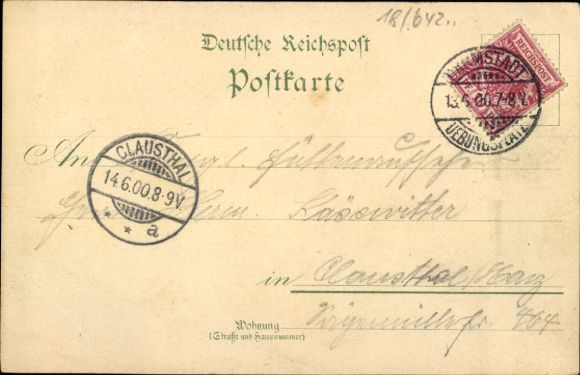 18/642..
Deutsche Reichspost
Postkarte
REICHSPOST
DARMSTADT
13.6.00.7-8V.
UEBUNGSPLATZ
CLAUSTHAL
14.6.00.8-9V.
* * a
An
Hüttenaufseher
Herrn Hern. Käsewitter
in Clausthal/Harz
464
Wohnung
(Straße und Hausnummer)